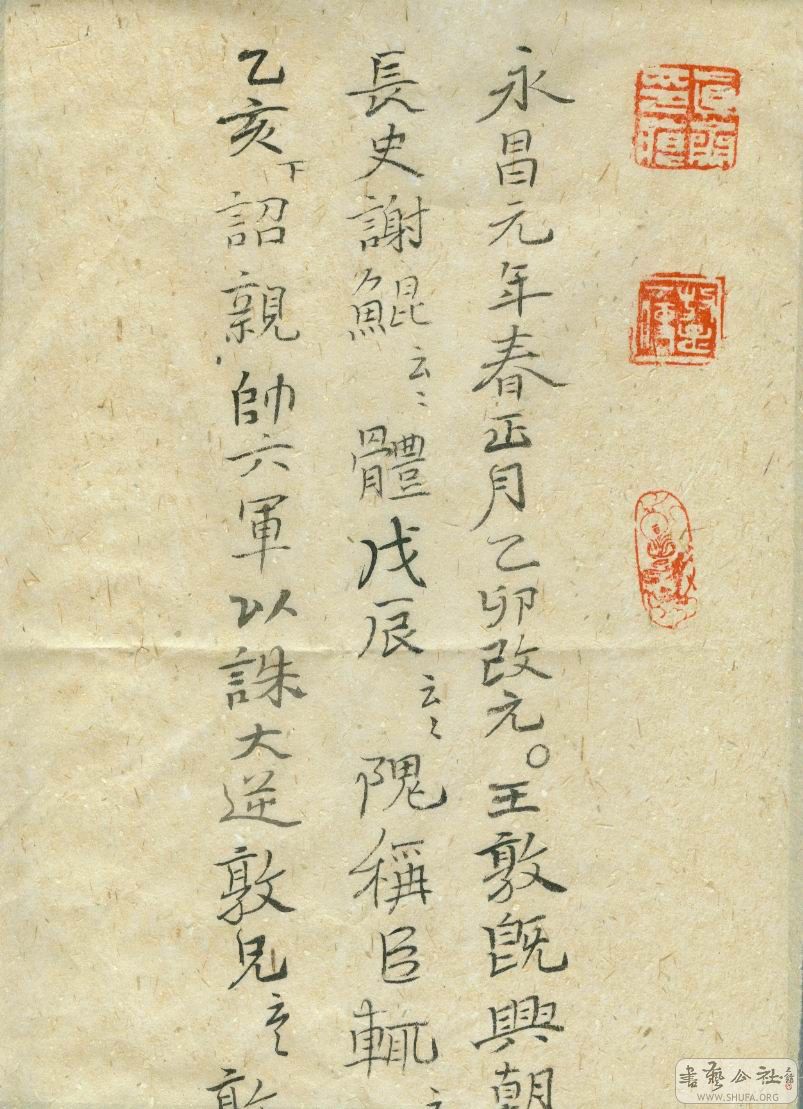 永昌元年春正月乙卯改元。王敦既興朝
長史謝鯤云〻體戊辰云〻隗稱臣輒云
乙亥下詔親帥六軍以誅大逆敦兄云〻敦
書藝公社
WWW.SHUFA.ORG